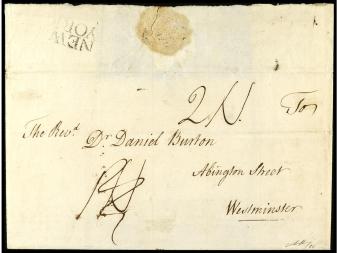 NEW
YORK
2N.
To
The Rev.d Dr Daniel Burton
Abington Street
Westminster